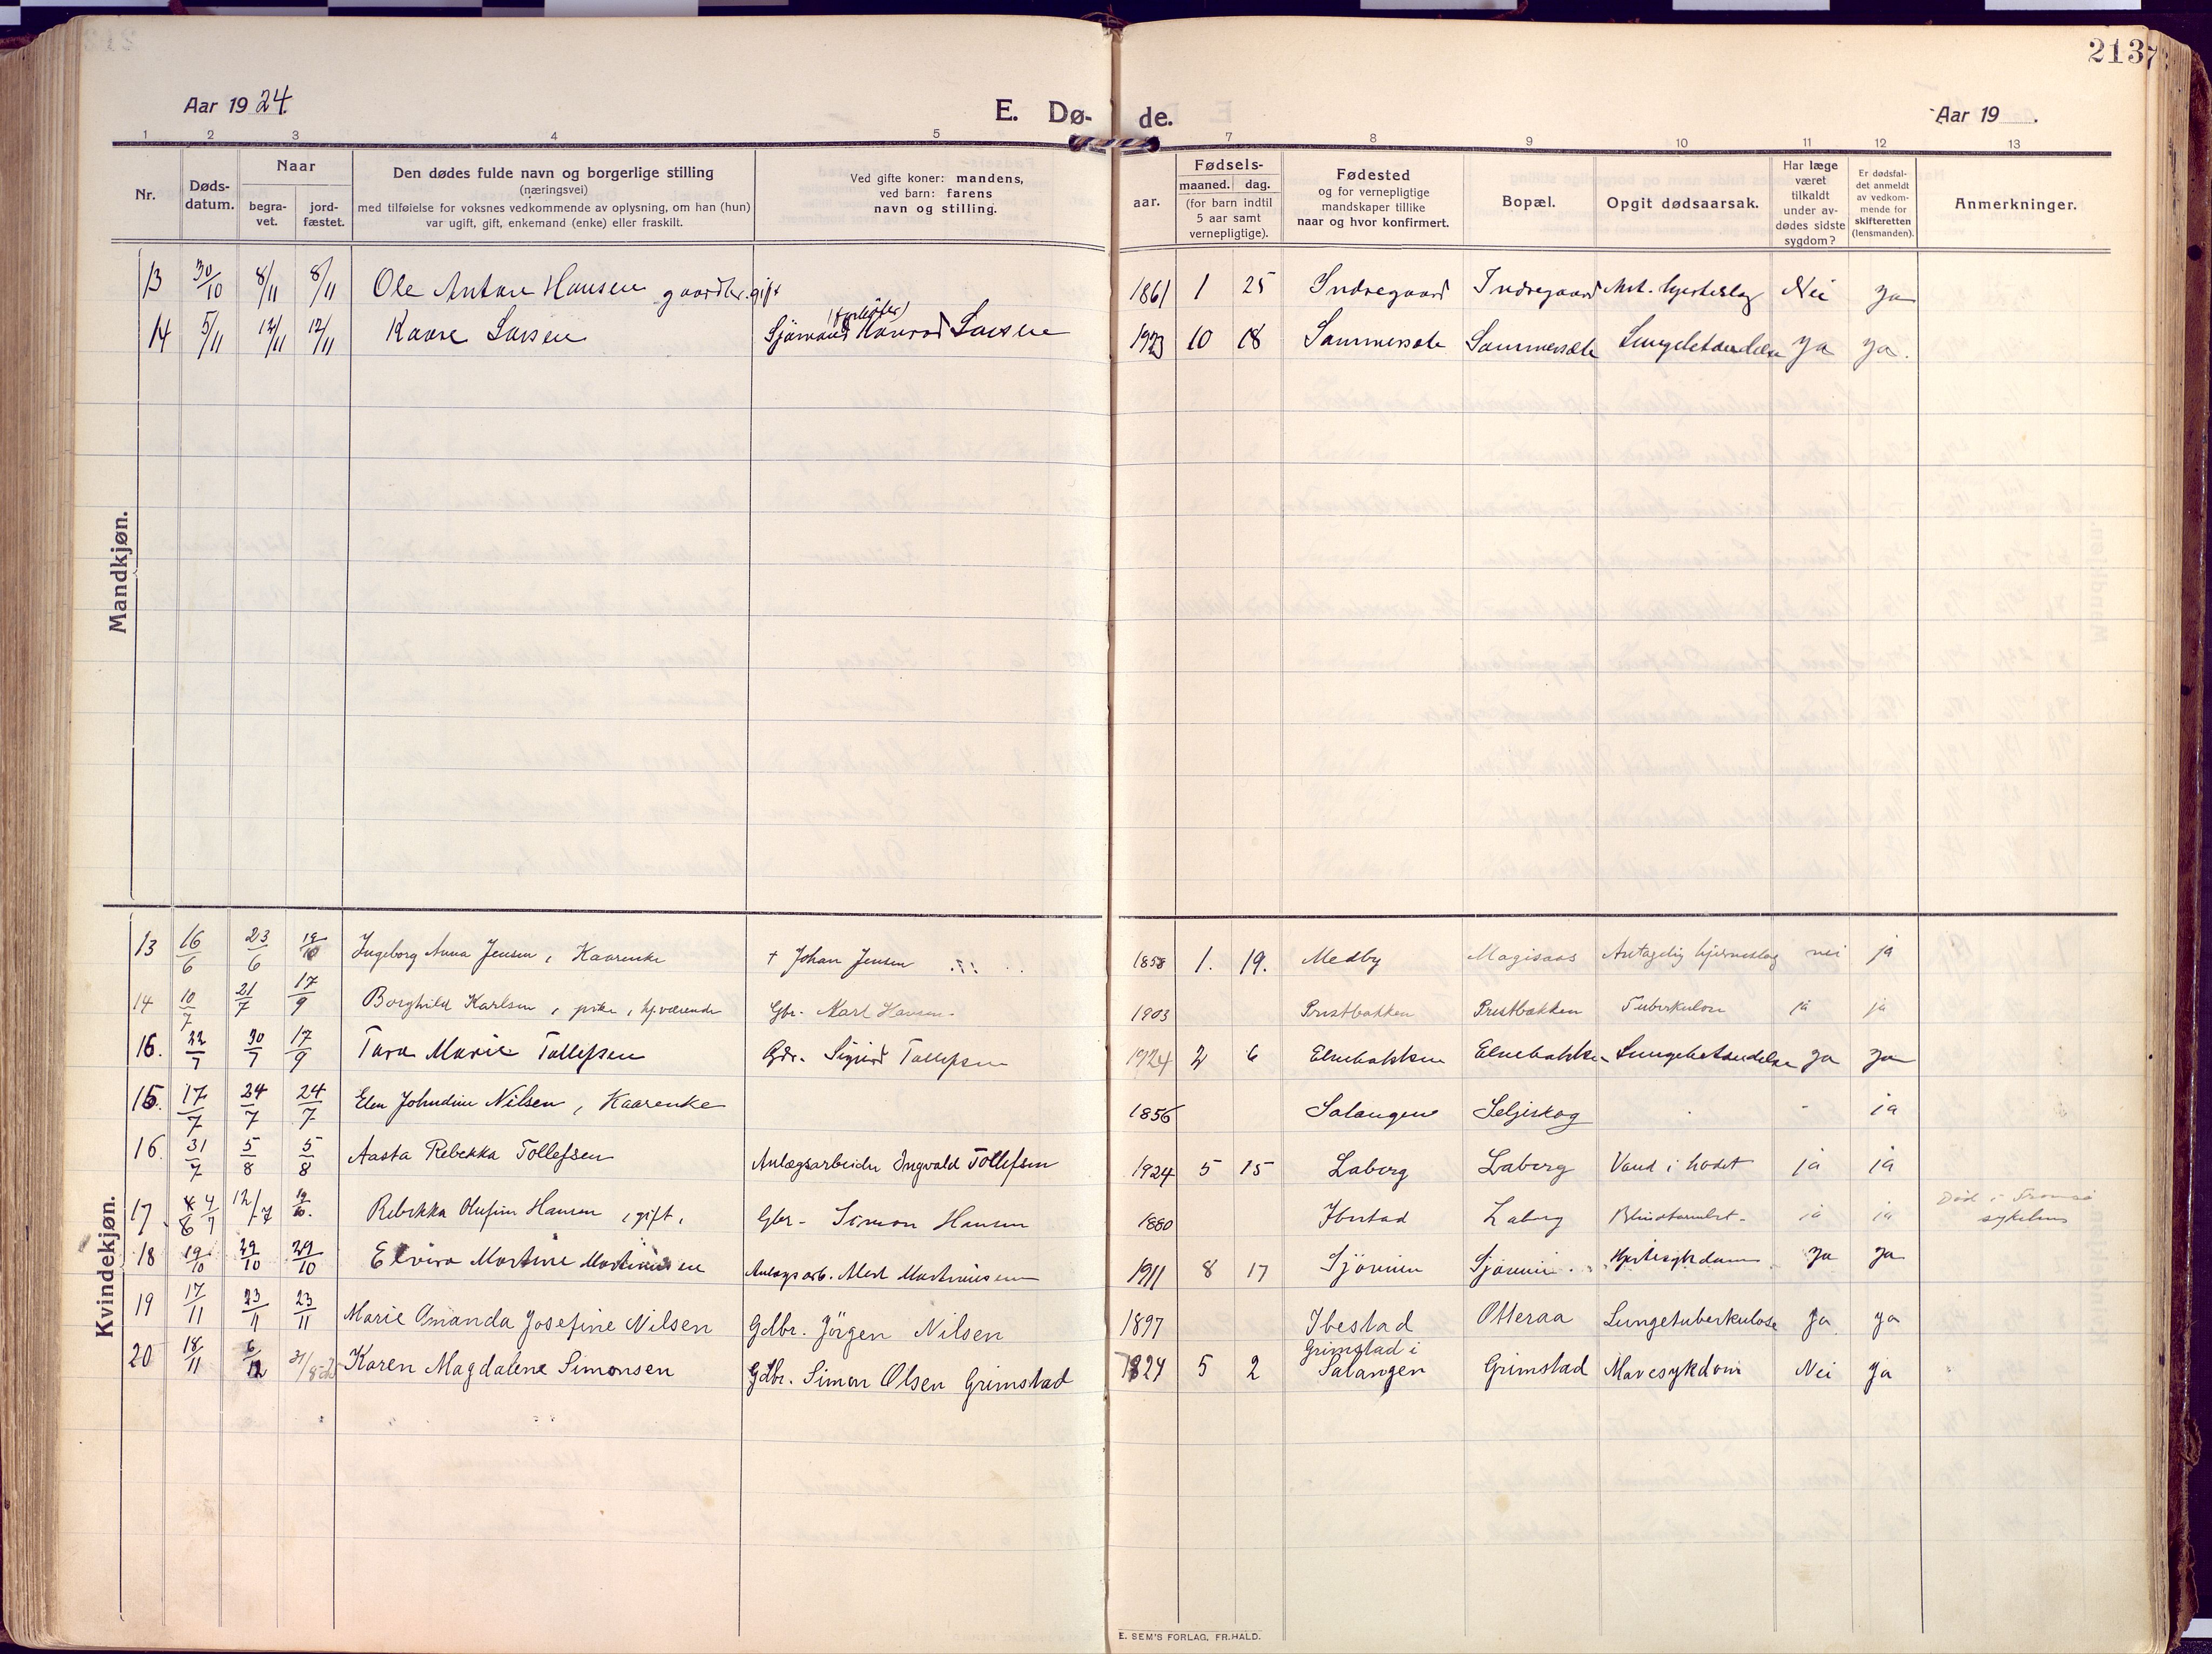 2137
Aar 1924.
E. Dø-
de.
Aar 19 .
1 2 3 4 5 7 8 9 10 11 12 13
Nr.
Døds-
datum.
Naar
begra-
vet.
jord-
fæstet.
Den dødes fulde navn og borgerlige stilling
(næringsvei)
med tilføielse for voksnes vedkommende av oplysning, om han (hun)
var ugift, gift, enkemand (enke) eller fraskilt.
Ved gifte koner: mandens,
ved barn: farens
navn og stilling.
Fødsels-
aar.
maaned. dag.
(for barn indtil
5 aar samt
vernepligtige).
Fødested
og for vernepligtige
mandskaper tillike
naar og hvor konfirmert.
Bopæl.
Opgit dødsaarsak.
Har læge
været
tilkaldt
under av-
dødes sidste
sygdom?
Er dødsfal-
det anmeldt
av vedkom-
mende for
skifteretten
(lensmanden).
Anmerkninger.
Mandkjøn.
13 30/10 8/11 8/11 Ole Antore Hansen gaardbr. gift 1861 1 25 Indregaard Indregaard Ant. hjerteslag Nei ja
14 5/11 12/11 12/11 Kaare Larsen Sjømand Konrad Larsen 1923 10 18 Sommersæte Sommersæte Lungebetændelse ja ja.
Kvindekjøn.
13 16/6 23/6 19/10 Ingeborg Anna Jensen, Kaarenke + Johan Jensen 1858 1. 19. Medby Magisaas Antagelig hjerneslag nei ja
14 10/7 21/7 17/9 Borghild Karlsen, pike, hj.værende Gbr. Karl Hansen 1903 Prestbakken Prestbakken Tuberkulose ja ja
16. 22/7 30/7 17/9 Tora Marie Tollefsen Gdr. Sigurd Tollefsen 1924 2 6 Elvebakken Elvebakken Lungebetændelse ja ja
15. 17/7 24/7 24/7 Elen Johndine Nilsen, Kaarenke 1856 Salangen Seljeskog ja
16. 31/7 5/8 5/8 Aasta Rebekka Tollefsen Anlægsarbeider Ingvald Tollefsen 1924 5 15 Laberg Laberg Vand i hodet ja ja
17 4/7 12/7 19/10. Rebekka Olufine Hansen, gift, Gbr. Simon Hansen 1880 Ibestad Laberg Blindtarmbet. ja ja Död i Tromsö
sykehus
18 19/10 29/10 29/10 Elvira Martine Martinussen Anlægsarb. Mart Martinussen 1911 8 17 Sjøvein Sjøvein Hjertesykdom ja ja
19 17/11 23/11 23/11 Marie Amanda Josefine Nilsen Gdbr. Jörgen Nilsen 1897 Ibestad Otteraa Lungetuberkulose ja ja
20 18/11 6/12 Karen Magdalene Simonsen Gdbr. Simon Olsen Grimstad 1824 5 2 Grimstad i
Salangen Grimstad Mavesykdom Nei ja
E. SEM'S FORLAG, FR.HALD.